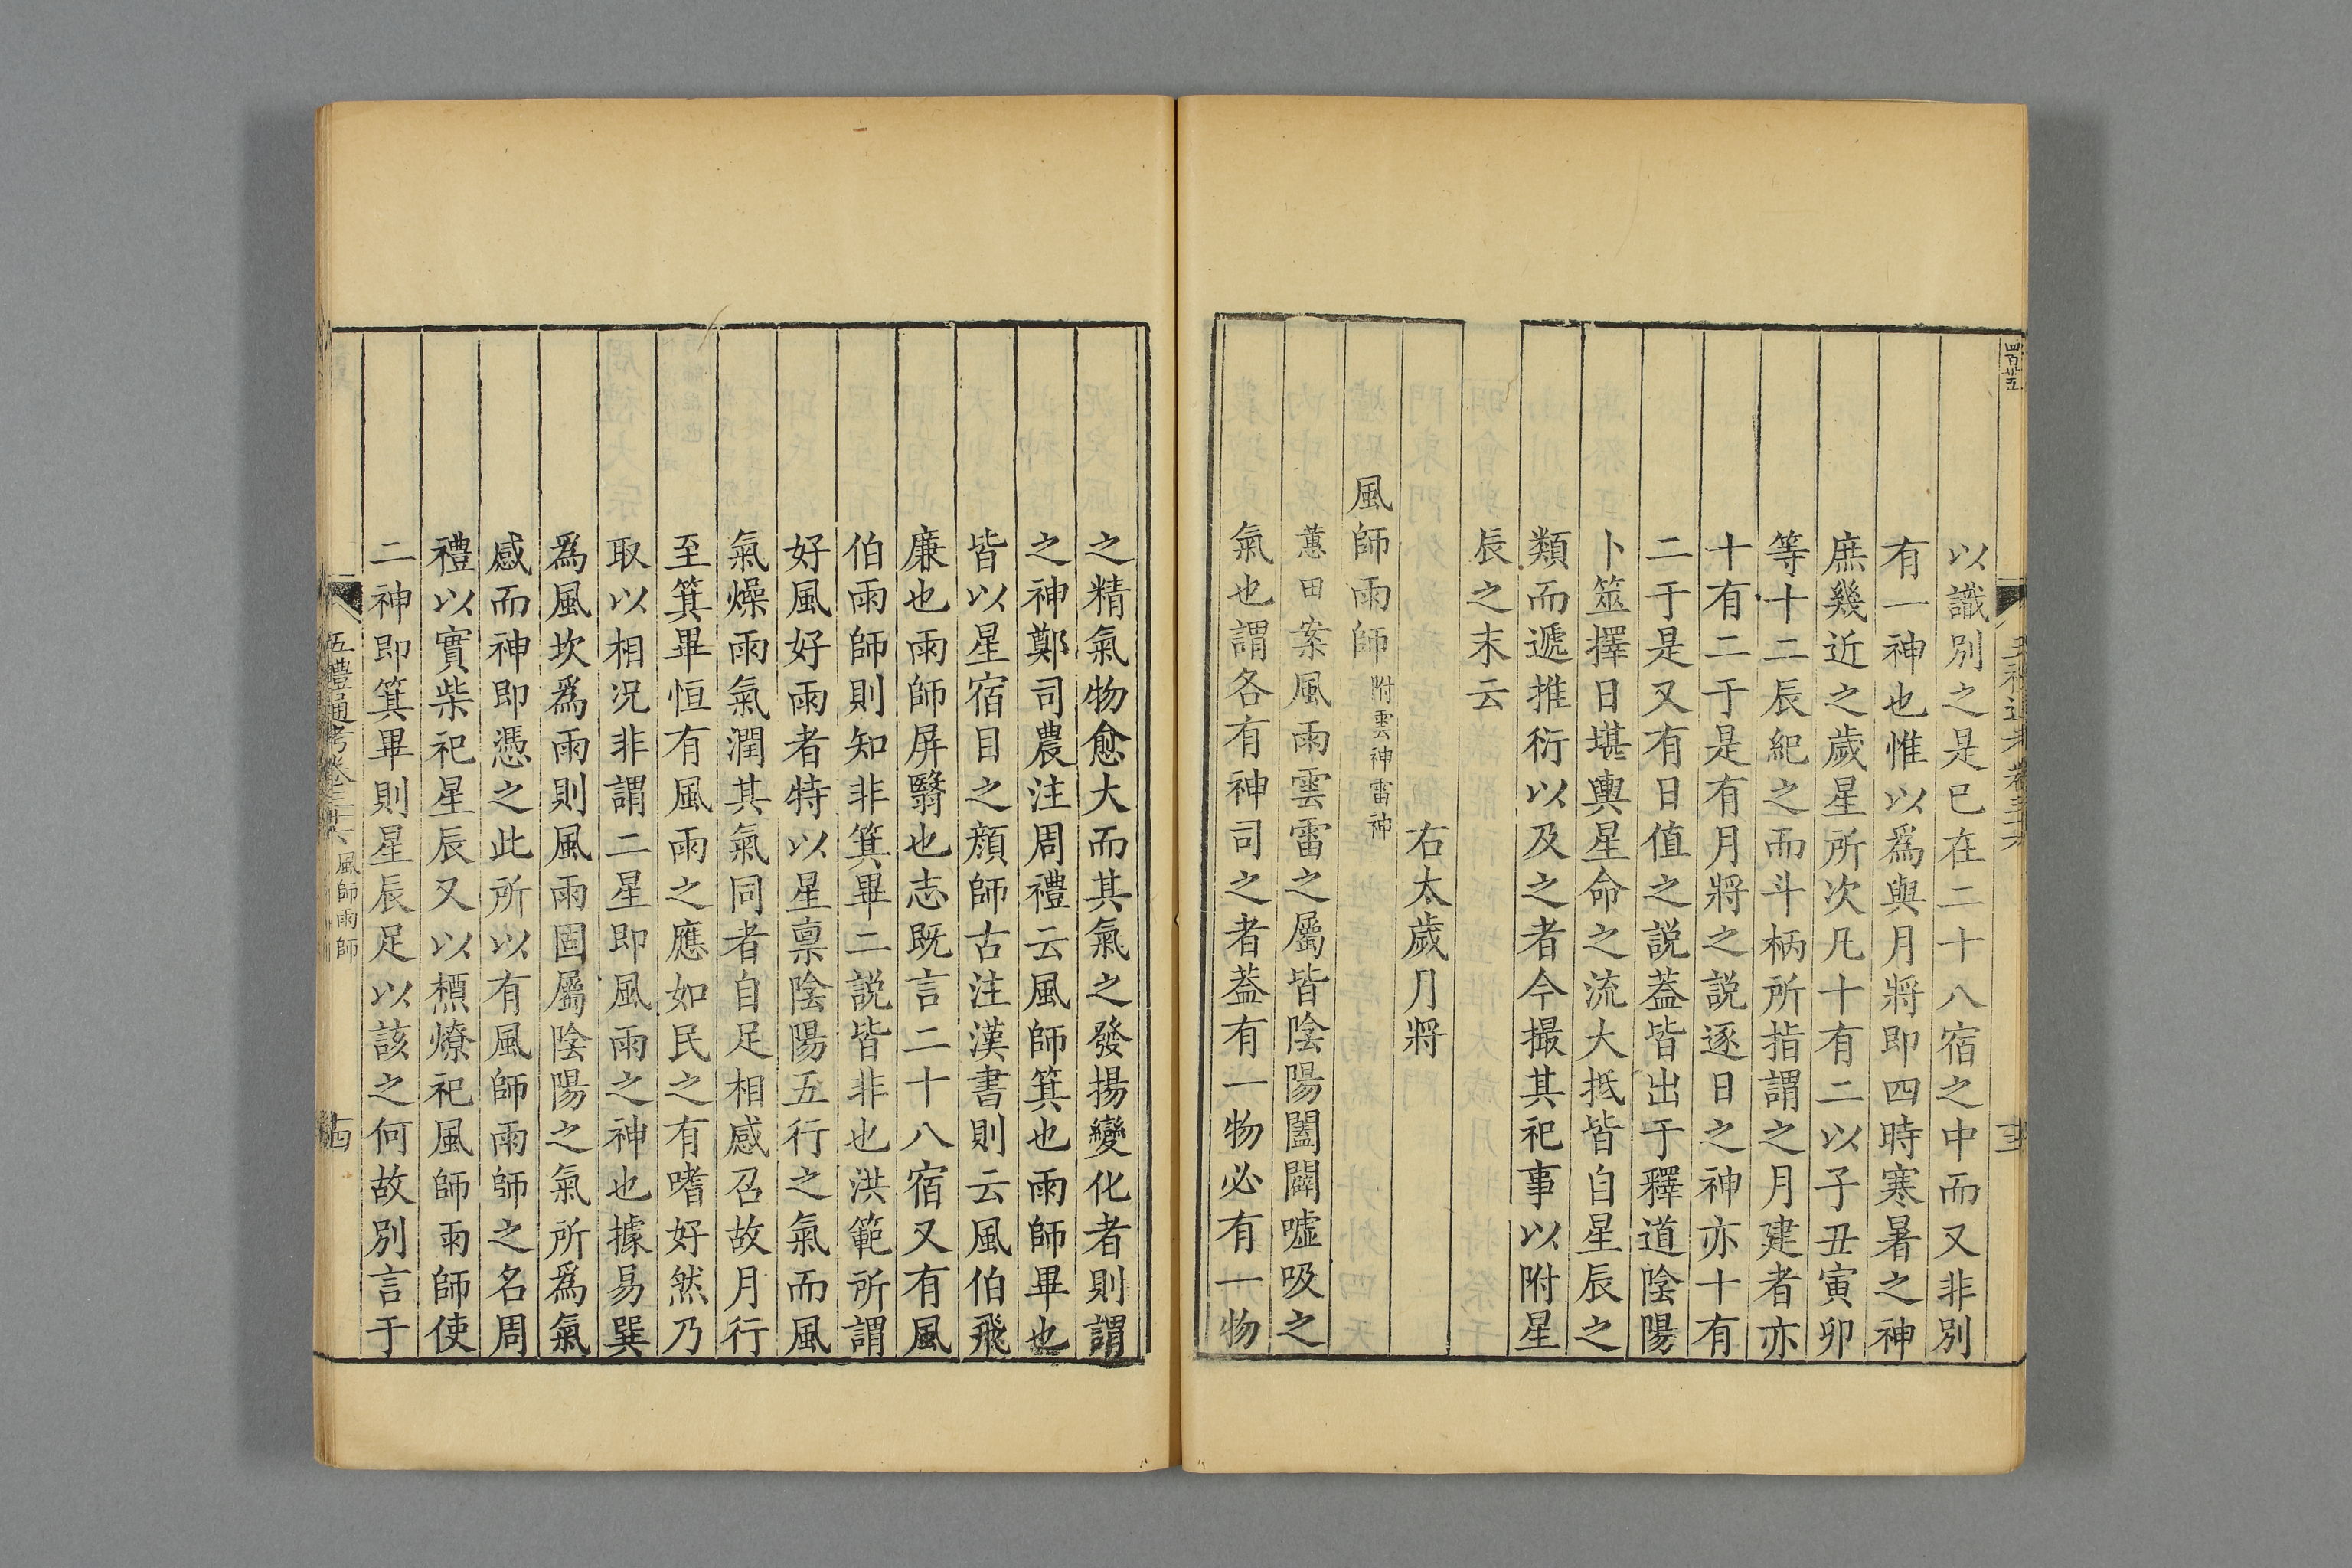 以識別之是已在二十八宿之中而又非別
有一神也惟以爲與月將即四時寒暑之神
庶幾近之歲星所次凡十有二以子丑寅卯
等十二辰紀之而斗柄所指謂之月建者亦
十有二于是有月將之説逐日之神亦十有
二于是又有日值之説蓋皆出于釋道陰陽
卜筮擇日堪輿星命之流大抵皆自星辰之
類而遞推衍以及之者今撮其祀事以附星
辰之末云
右太歲月將
風師雨師附雲神雷神
蕙田案風雨雲雷之屬皆陰陽闔闢噓吸之
氣也謂各有神司之者蓋有一物必有一物
之精氣物愈大而其氣之發揚變化者則謂
之神鄭司農注周禮云風師箕也雨師畢也
皆以星宿目之顏師古注漢書則云風伯飛
廉也雨師屏翳也志既言二十八宿又有風
伯雨師則知非箕畢二説皆非也洪範所謂
好風好雨者特以星稟陰陽五行之氣而風
氣燥雨氣潤其氣同者自足相感召故月行
至箕畢恒有風雨之應如民之有嗜好然乃
取以相況非謂二星即風雨之神也據易巽
爲風坎爲雨則風雨固屬陰陽之氣所爲氣
感而神即憑之此所以有風師雨師之名周
禮以實柴祀星辰又以槱燎祀風師雨師使
二神即箕畢則星辰足以該之何故別言于
五禮通考卷三十六 風師雨師
十四